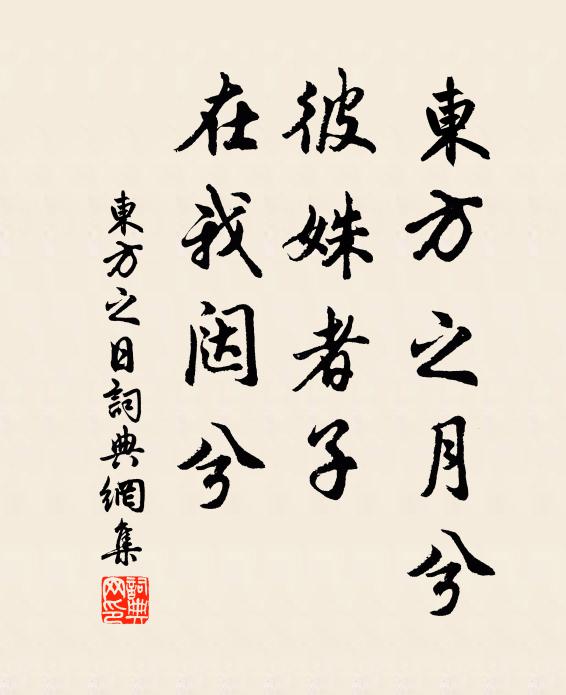 東方之月兮
彼姝者子
在我闼兮
東方之日詞典網集
詞典网印